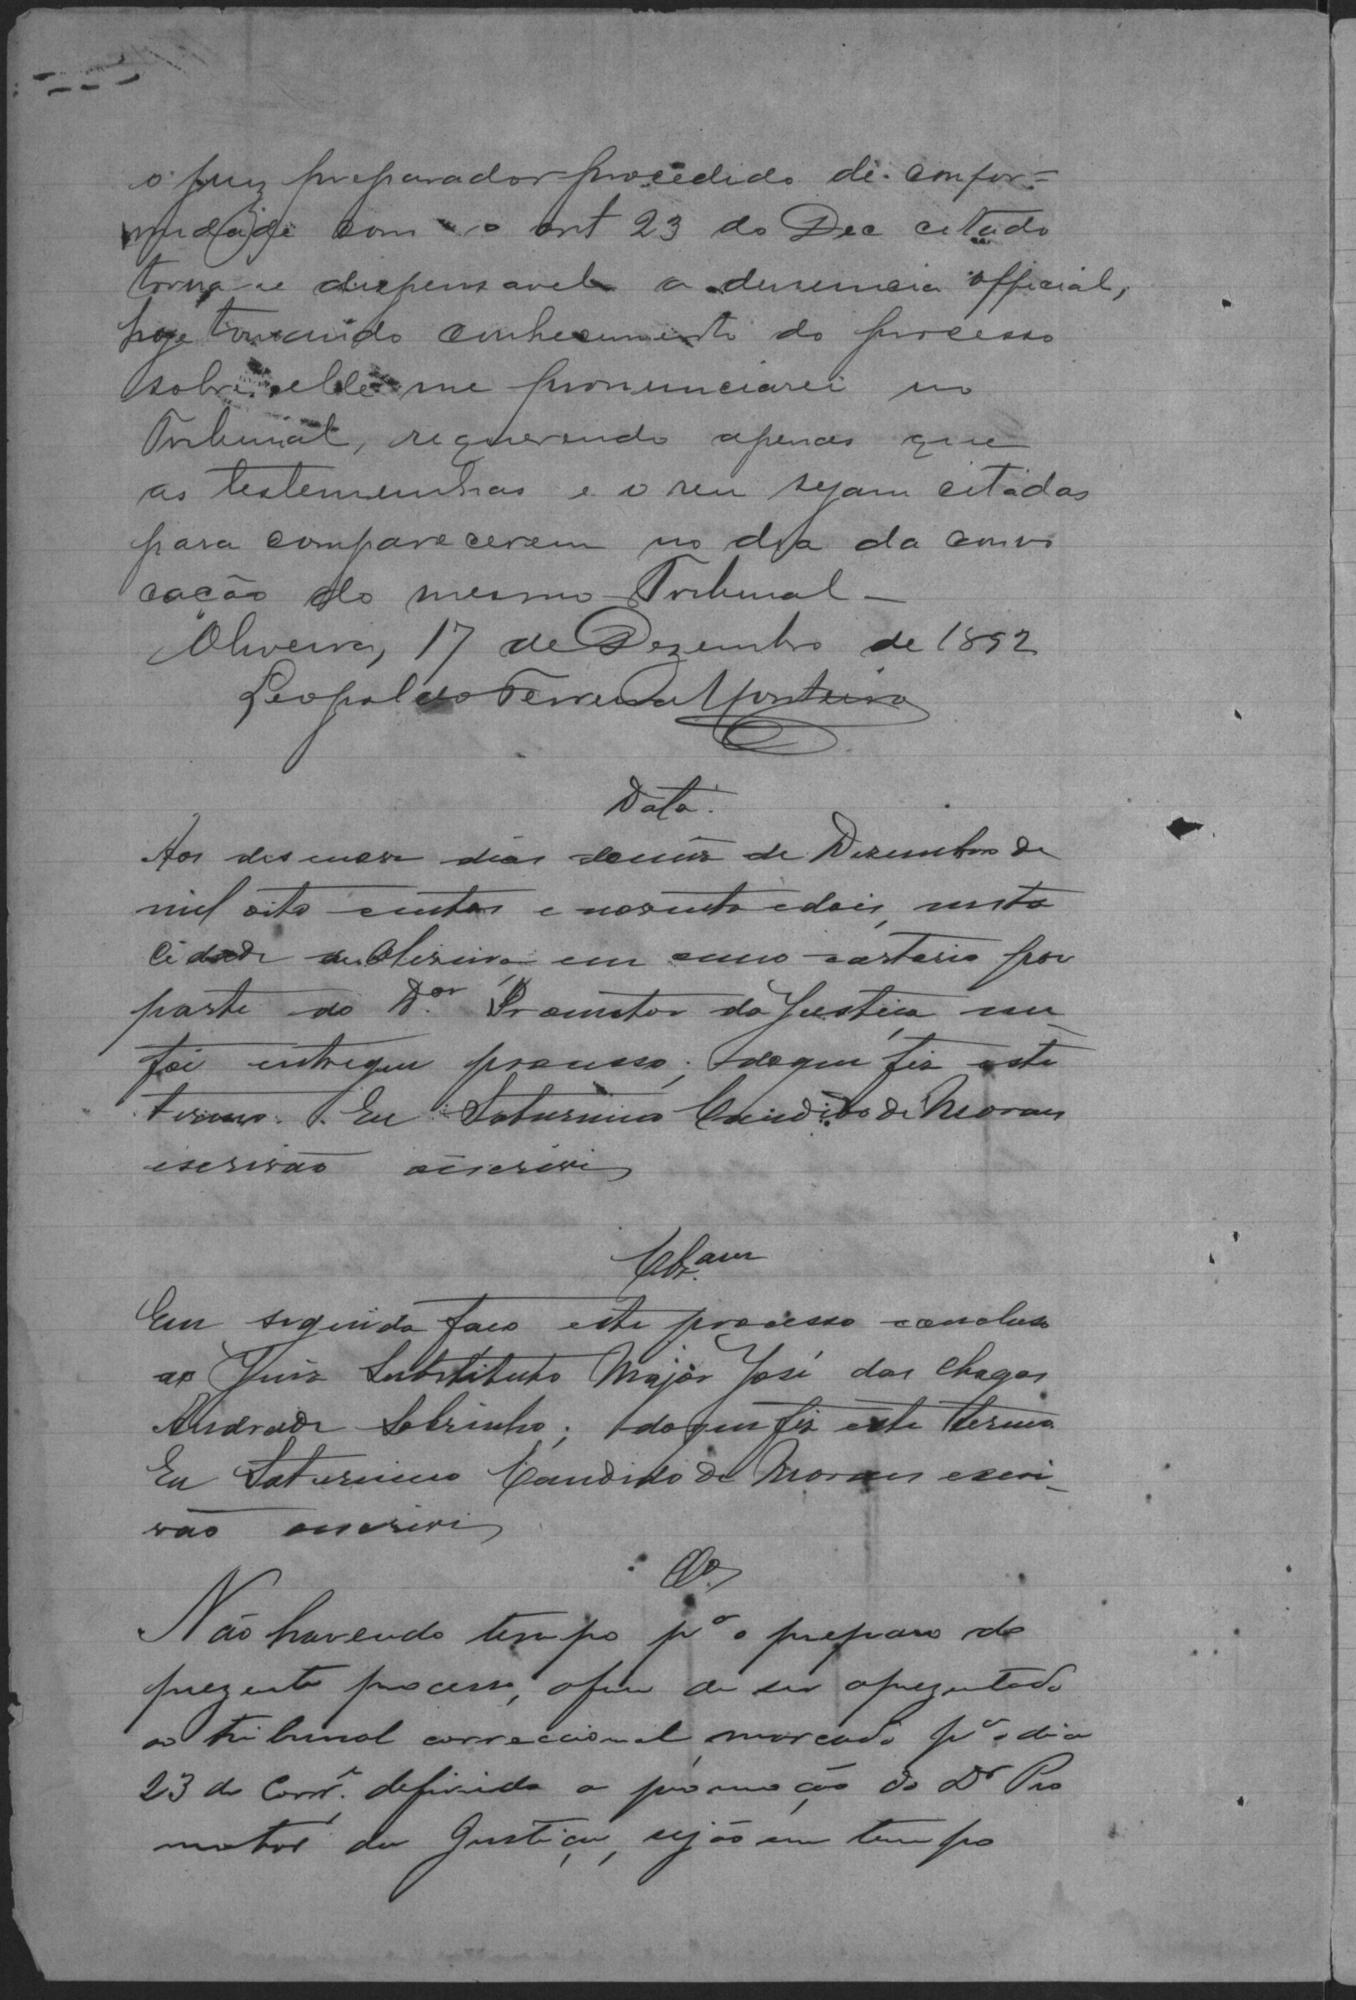 o juiz preparador procedido de confor=
midade com o art 23 do Dec citado
torna-se dispensavel a denuncia official,
hoje tomando conhecimento do processo
sobre elle me pronunciarei no
Tribunal, requerendo apenas que
as testemunhas e o reu sejam citados
para comparecerem no dia da convo
cação do mesmo Tribunal –
Oliveira, 17 de Dezembro de 1892
Leopoldo Ferreira Monteiro
Data.
Aos desenove dias do mez de Dezembro de
mil oito centos e noventa e dois, nesta
cidade de Oliveira em meu cartorio por
parte do D.or Promotor da Justiça me
foi entregue processo; do que fiz este
termo. Eu Saturnino Candido de Moraes
escrivão escrevi
Cls.am
Em seguida faço este processo concluso
ao Juiz Substituto Major José das Chagas
Andrade Sobrinho; do que fiz este termo
Eu Saturnino Candido de Moraes escri-
vão escrevi
Clo.
Não havendo tempo p.a o preparo do
prezente processo, afim de ser aprezentado
ao tribunal correccional, marcado p.a o dia
23 do Corr.e defirido a promoção do Dr Pro
motor da Justiça, sejão em tempo